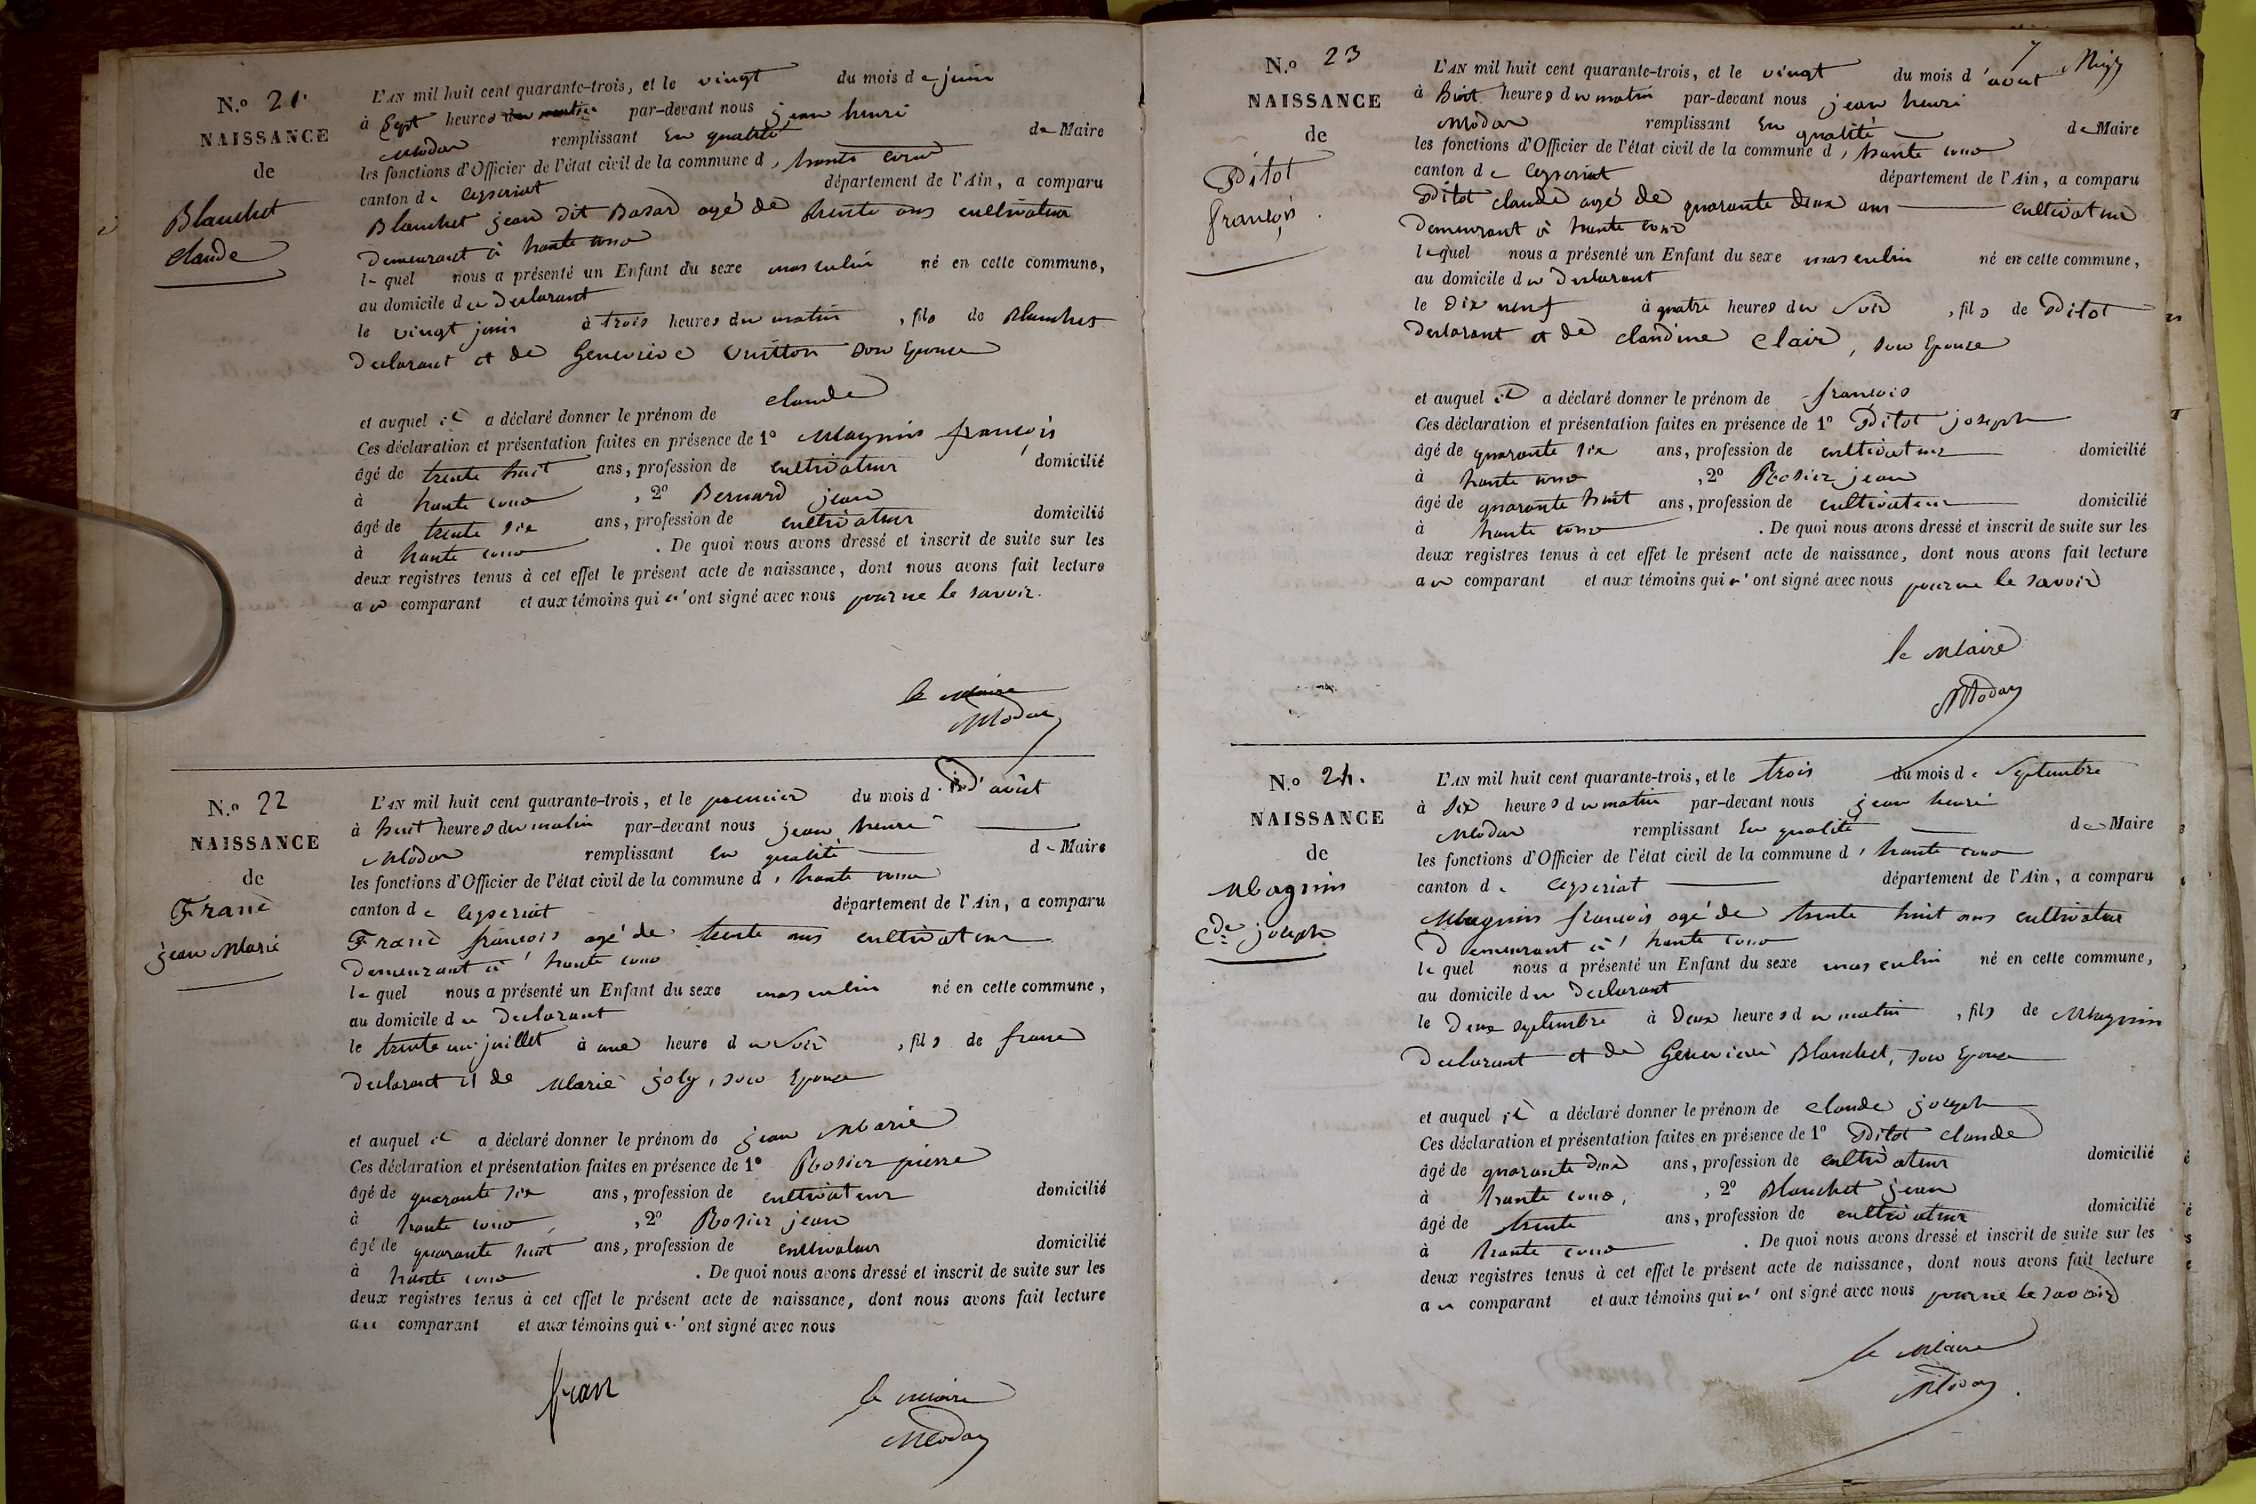 N.o 21.
NAISSANCE
de
Blanchet
Claude
L'AN mil huit cent quarante-trois, et le vingt du mois de juin
à Sept heures du matin par-devant nous jean henri
Modas remplissant En qualité de Maire
les fonctions d'Officier de l'état civil de la commune d'
canton de Ceyzeriat département de l'Ain, a comparu
Blanchet jean dit agé de trente ans cultivateur
Demeurant à
le quel nous a présenté un Enfant du sexe masculin né en cette commune,
au domicile du Declarant
le vingt juin à trois heures du matin, fils de Blanchet
Declarant et de Genevieve son Epouse
et auquel il a déclaré donner le prénom de claude
Ces déclaration et présentation faites en présence de 1o Magnin françois
âgé de trente huit ans, profession de cultivateur domicilié
à , 2o Bernard jean
âgé de trente six ans, profession de cultivateur domicilié
à . De quoi nous avons dressé et inscrit de suite sur les
deux registres tenus à cet effet le présent acte de naissance, dont nous avons fait lecture
au comparant et aux témoins qui n'ont signé avec nous pour ne le savoir.
le Maire
N.o 22
NAISSANCE
de
jean Marie
L'AN mil huit cent quarante-trois, et le premier du mois d'août
à huit heures du matin par-devant nous jean henri
remplissant En qualité de Maire
les fonctions d'Officier de l'état civil de la commune d'
canton de Ceyzeriat département de l'Ain, a comparu
françois agé de trente ans cultivateur
Demeurant à
le quel nous a présenté un Enfant du sexe masculin né en cette commune,
au domicile du Declarant
le trente un juillet à une heure du soir, fils de
Declarant et de Marie joly, son Epouse
et auquel il a déclaré donner le prénom de jean Marie
Ces déclaration et présentation faites en présence de 1o Rosier pierre
âgé de quarante six ans, profession de cultivateur domicilié
à , 2o Rosier jean
âgé de quarante huit ans, profession de cultivateur domicilié
à . De quoi nous avons dressé et inscrit de suite sur les
deux registres tenus à cet effet le présent acte de naissance, dont nous avons fait lecture
au comparant et aux témoins qui n'ont signé avec nous
le maire
7
N.o 23
NAISSANCE
de
Pitot
françois
L'AN mil huit cent quarante-trois, et le vingt du mois d'aout
à huit heures du matin par-devant nous jean henri
remplissant En qualité de Maire
les fonctions d'Officier de l'état civil de la commune d'
canton de Ceyzeriat département de l'Ain, a comparu
Pitot claude agé de quarante deux ans cultivateur
Demeurant à
le quel nous a présenté un Enfant du sexe masculin né en cette commune,
au domicile du Declarant
le Dix neuf à quatre heures du Soir, fils de Pitot
Declarant et de claudine Clair, son Epouse
et auquel il a déclaré donner le prénom de françois
Ces déclaration et présentation faites en présence de 1o Pitot joseph
âgé de quarante six ans, profession de cultivateur domicilié
à , 2o Rosier jean
âgé de quarante huit ans, profession de cultivateur domicilié
à . De quoi nous avons dressé et inscrit de suite sur les
deux registres tenus à cet effet le présent acte de naissance, dont nous avons fait lecture
au comparant et aux témoins qui n'ont signé avec nous pour ne le savoir
le Maire
N.o 24.
NAISSANCE
de
Magnin
Cde joseph
L'AN mil huit cent quarante-trois, et le trois du mois de Septembre
à six heures du matin par-devant nous jean henri
remplissant En qualité de Maire
les fonctions d'Officier de l'état civil de la commune d'
canton de Ceyzeriat département de l'Ain, a comparu
Magnin françois agé de trente huit ans cultivateur
Demeurant à
le quel nous a présenté un Enfant du sexe masculin né en cette commune,
au domicile du Declarant
le Deux septembre à Deux heures du matin, fils de Magnin
Declarant et de Genevieve Blanchet, son Epouse
et auquel il a déclaré donner le prénom de claude joseph
Ces déclaration et présentation faites en présence de 1o Pitot claude
âgé de quarante deux ans, profession de cultivateur domicilié
à , 2o Blanchet jean
âgé de trente ans, profession de cultivateur domicilié
à . De quoi nous avons dressé et inscrit de suite sur les
deux registres tenus à cet effet le présent acte de naissance, dont nous avons fait lecture
au comparant et aux témoins qui n'ont signé avec nous pour ne le savoir
le Maire